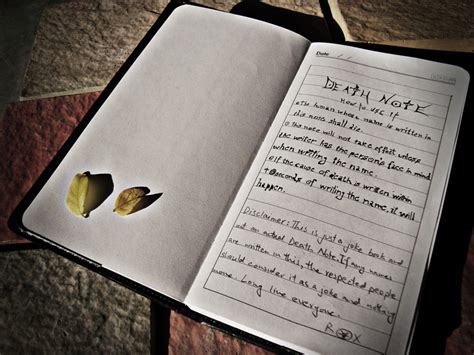 Date: / /
DEATH NOTE
HOW TO USE IT
The human whose name is written in
this note shall die.
This note will not take effect unless
the writer has the person's face in mind
when writing the name.
If the cause of death is written within
seconds of writing the name, it will
happen.
Disclaimer: This is just a joke book and
not an actual Death Note. If any names
are written in this, the respected people
should consider it as a joke and nothing
more. Long live everyone.
R X